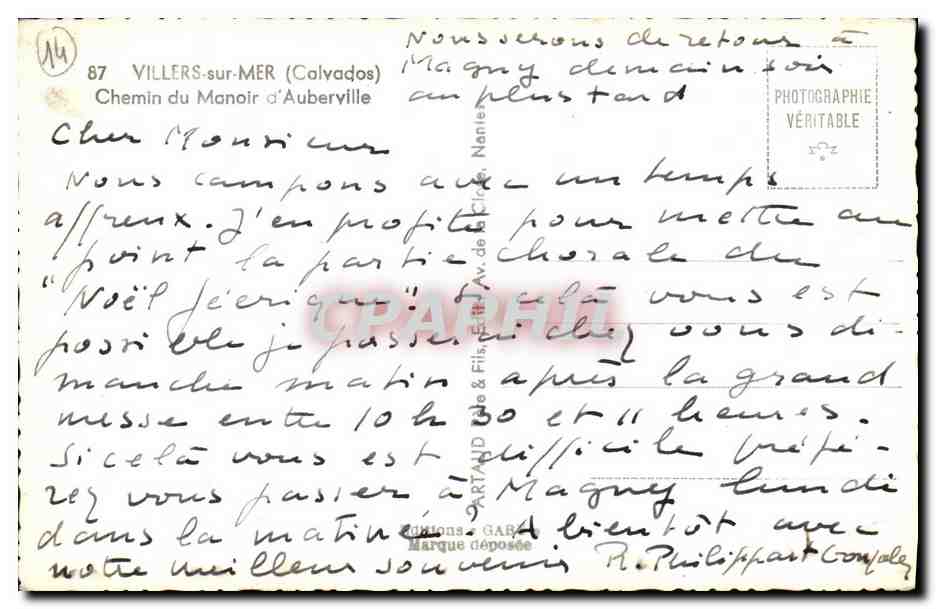 14
87 VILLERS-sur-MER (Calvados)
Chemin du Manoir d'Auberville
Nous serons de retour à
Magny demain soir
au plus tard
PHOTOGRAPHIE
VÉRITABLE
Cher Monsieur
Nous campons avec un temps
affreux. J'en profite pour mettre au
"point la partie chorale du
"Noël féerique". Si celà vous est
possible je passerai chez vous di-
manche matin après la grand
messe entre 10 h 30 et 11 heures.
Si celà vous est difficile préfé-
rez vous passer à Magny lundi
dans la matinée? A bientôt avec
notre meilleur souvenir R. Philippart Gonzalez
ARTAUD Père & Fils, Édit., Av. de la Close, Nantes
Editions "GABY"
Marque déposée
CPAPHIL